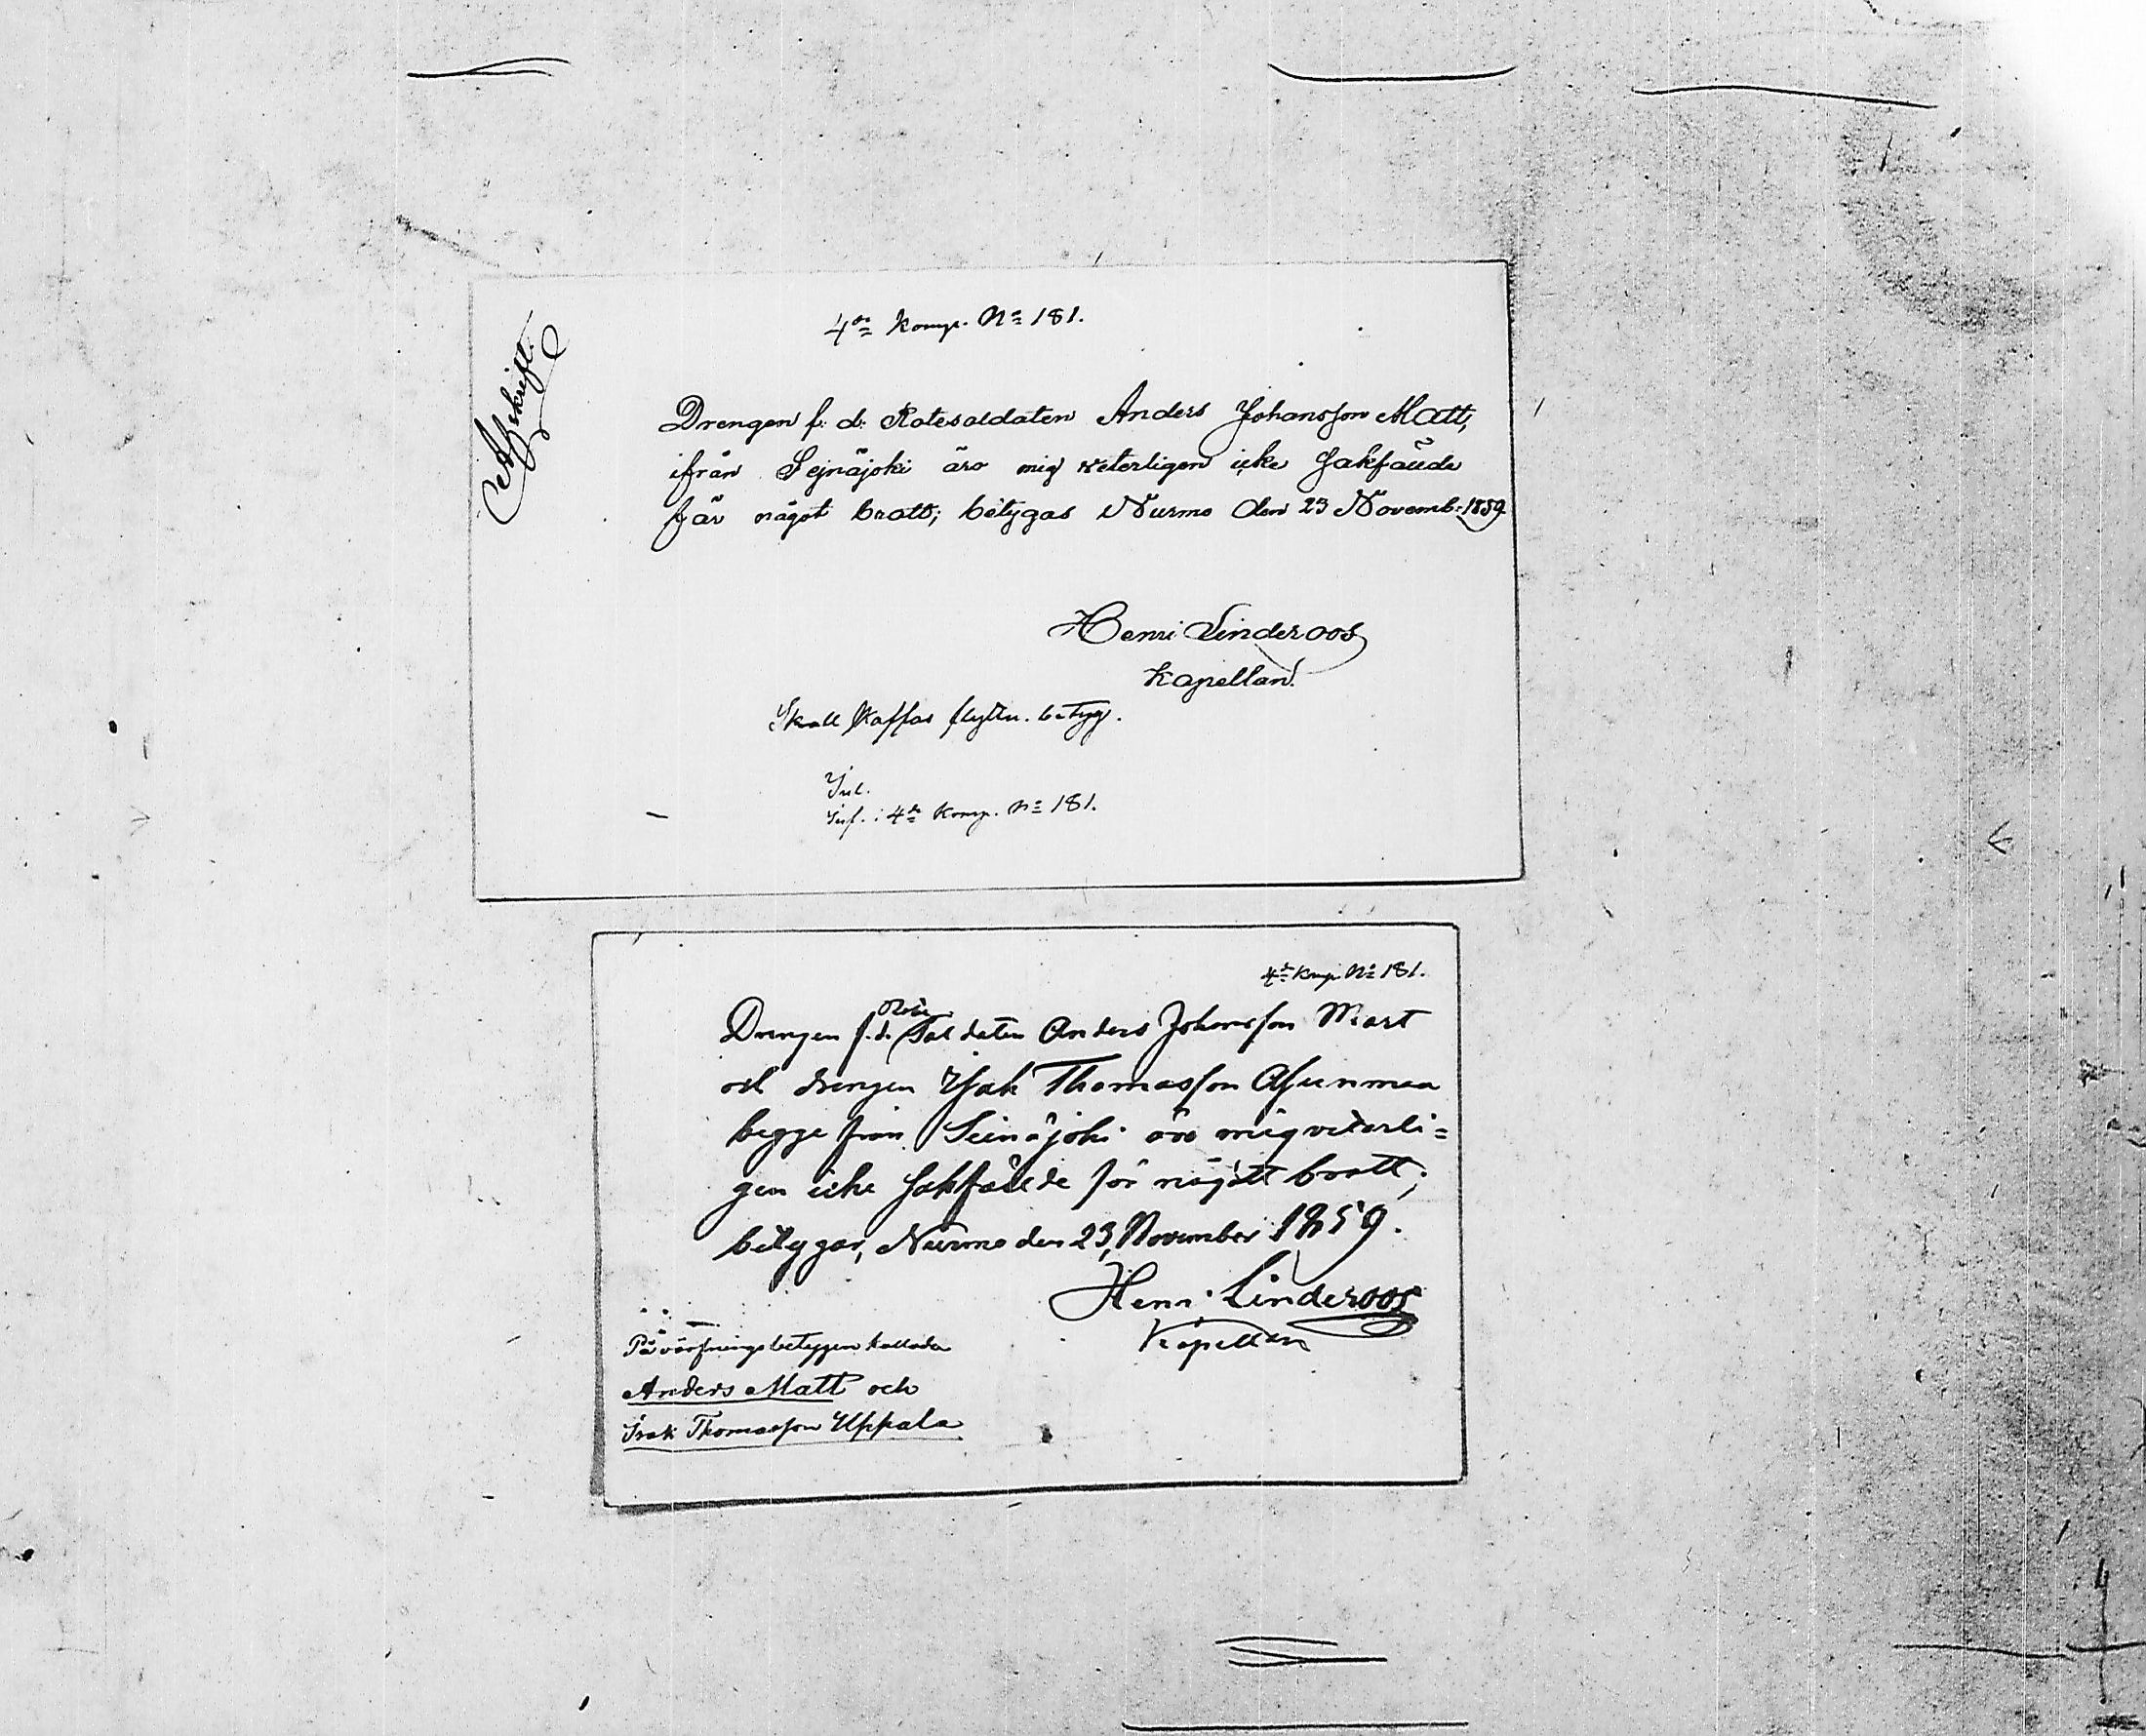 Afskrift.
4de Komp. No 181.
Drengen f: d: Rotesoldaten Anders Johansson Matt,
ifrån Sejnäjoki äro mig veterligen icke sakfäude
för något brott; betygas Nurmo den 23 Novemb: 1859.
Henri Linderoos
Kapellan.
Skall skaffas flyttn. betyg.
Inf. i 4de Komp. No 181.
4de Komp. No 181.
Rote
Drengen f.d. Soldaten Anders Johansson Matt
och drengen Isak Thomasson Asunmaa
begge från Seinäjoki äro mig veterli=
gen icke sakfälde för något brott;
betygar, Nurmo den 23 November 1859.
Henri Linderoos
Kapellan
På värfningsbetygen kallade
Anders Matt och
Isak Thomasson Uppala